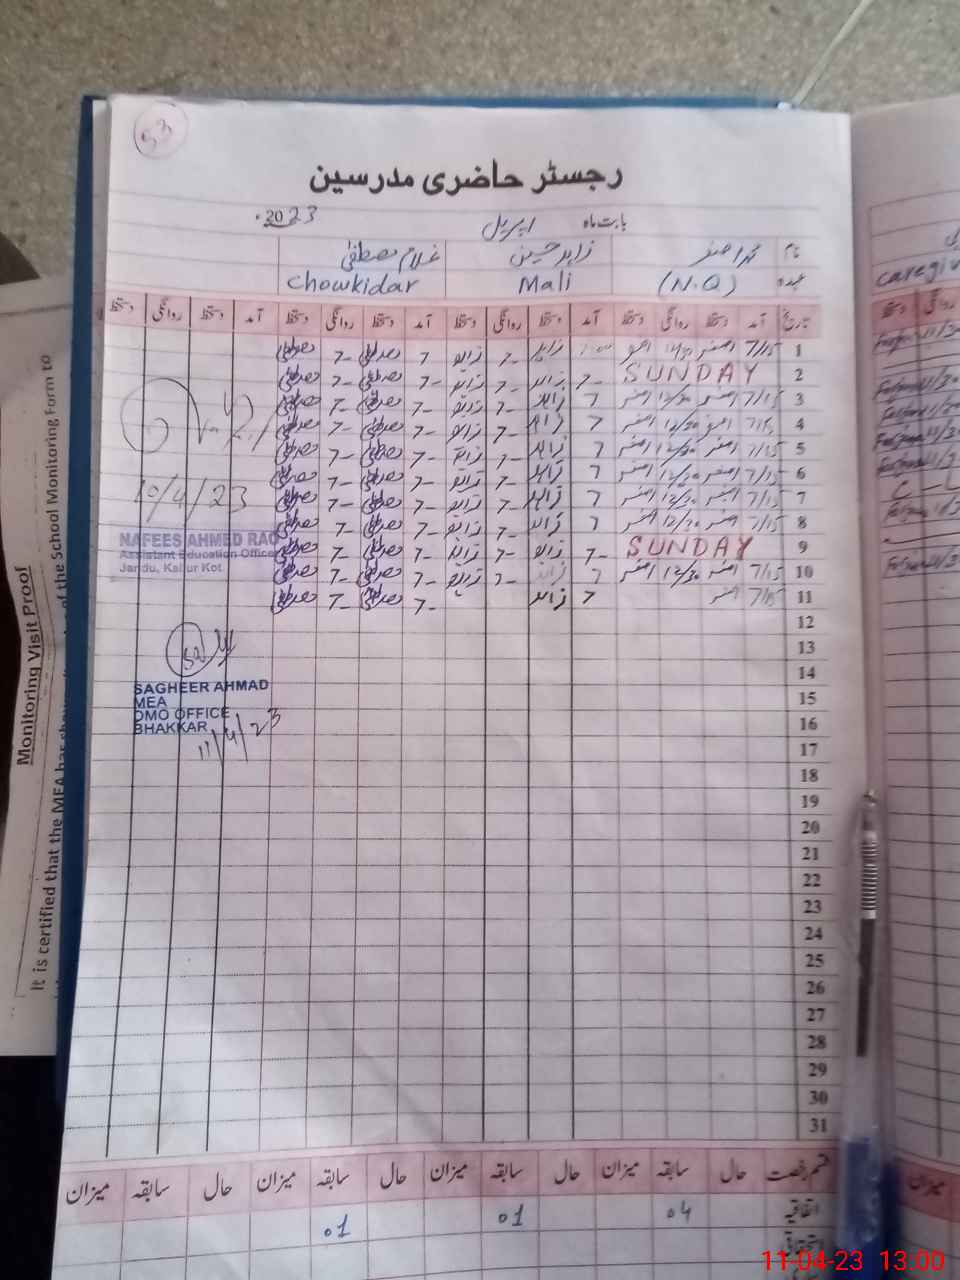 53
رجسٹر حاضری مدرسین
بابت ماہ اپریل 2023
نام محمد اصغر زاہد حسین غلام مصطفیٰ
عہدہ (N.Q) Mali Chowkidar
تاریخ آمد دستخط روانگی دستخط آمد دستخط روانگی دستخط آمد دستخط روانگی دستخط آمد دستخط روانگی دستخط
1 7/15 اصغر 12/30 اصغر زاہد 7- زاہد 7 مصطفیٰ 7- مصطفیٰ
2 SUNDAY 7- زاہد 7- زاہد 7- مصطفیٰ 7- مصطفیٰ
3 7/15 اصغر 12/30 اصغر 7 زاہد 7- زاہد 7- مصطفیٰ 7- مصطفیٰ
4 7/15 اصغر 12/30 اصغر 7 زاہد 7- زاہد 7- مصطفیٰ 7- مصطفیٰ
5 7/15 اصغر 12/30 اصغر 7 زاہد 7- زاہد 7- مصطفیٰ 7- مصطفیٰ
6 7/15 اصغر 12/30 اصغر 7 زاہد 7- زاہد 7- مصطفیٰ 7- مصطفیٰ
7 7/15 اصغر 12/30 اصغر 7 زاہد 7- زاہد 7- مصطفیٰ 7- مصطفیٰ
8 7/15 اصغر 12/30 اصغر 7 زاہد 7- زاہد 7- مصطفیٰ 7- مصطفیٰ
9 SUNDAY 7- زاہد 7- زاہد 7- مصطفیٰ 7- مصطفیٰ
10 7/15 اصغر 12/30 اصغر 7 زاہد 7- زاہد 7- مصطفیٰ 7- مصطفیٰ
11 7/15 اصغر 7 زاہد 7- مصطفیٰ 7- مصطفیٰ
12
13
14
15
16
17
18
19
20
21
22
23
24
25
26
27
28
29
30
31
10/4/23
NAFEES AHMED RAO
Assistant Education Officer
Jandu, Kallur Kot
SAGHEER AHMAD
MEA
DMO OFFICE
BHAKKAR
11/4/23
قسم رخصت حال سابقہ میزان حال سابقہ میزان حال سابقہ میزان حال سابقہ میزان
اتفاقیہ 04 01 01
استحقاقی
Monitoring Visit Proof
It is certified that the MEA has of the School Monitoring Form to
روانگی دستخط
میزان
11-04-23 13:00